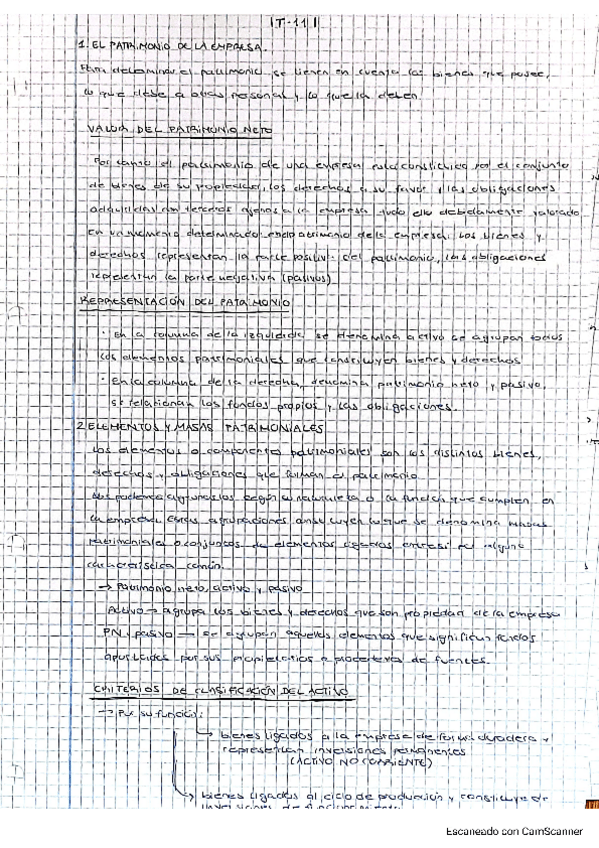 T-11
1. EL PATRIMONIO DE LA EMPRESA.
Para determinar el patrimonio se tienen en cuenta los bienes que posee,
lo que debe a otras personas y lo que le deben.
VALOR DEL PATRIMONIO NETO
Por tanto el patrimonio de una empresa está constituido por el conjunto
de bienes de su propiedad, los derechos a su favor y las obligaciones
adquiridas con terceros ajenos a la empresa todo ello debidamente valorado
en un momento determinado en el patrimonio de la empresa. Los bienes y
derechos representan la parte positiva del patrimonio, las obligaciones
representan la parte negativa (pasivos)
REPRESENTACIÓN DEL PATRIMONIO
· En la columna de la izquierda se denomina activo se agrupan todos
los elementos patrimoniales que constituyen bienes y derechos
· En la columna de la derecha, denomina patrimonio neto y pasivo,
se relacionan los fondos propios y las obligaciones.
2 ELEMENTOS Y MASAS PATRIMONIALES
Los elementos o componentes patrimoniales son los distintos bienes,
derechos y obligaciones que forman el patrimonio.
podemos agruparlos según su naturaleza o la función que cumplen en
la empresa estas agrupaciones constituyen lo que se denomina masas
patrimoniales o conjuntos de elementos entre sí por alguna
característica común.
→ Patrimonio neto, activo y pasivo
Activo → agrupa los bienes y derechos que son propiedad de la empresa
PN y pasivo → se agrupan aquellos elementos que significan fondos
aportados por sus propietarios o de fuentes.
CRITERIOS DE CLASIFICACIÓN DEL ACTIVO
→ Por su función:
↳ bienes ligados a la empresa de forma duradera y
representan inversiones permanentes
(ACTIVO NO CORRIENTE)
↳ bienes ligados al ciclo de producción y constituye de
Escaneado con CamScanner